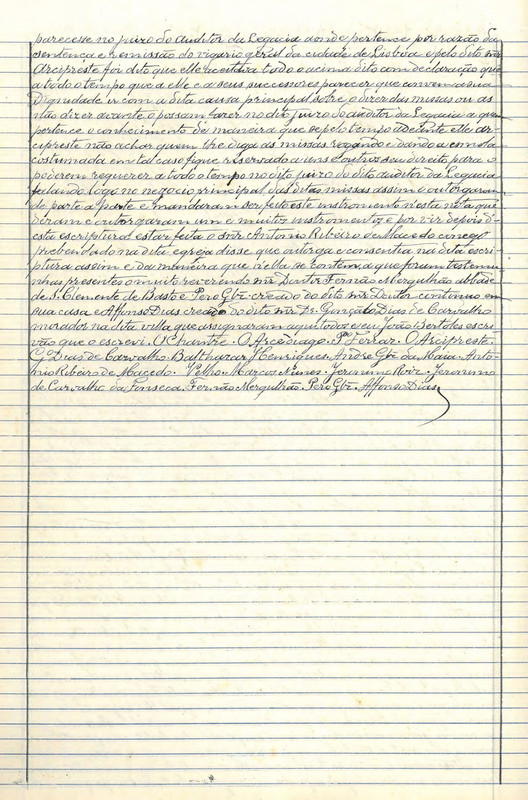 parecesse no juizo do auditor da Legacia donde pertence por razão da
sentença e remissão do vigario geral da cidade de Lisboa e pelo dito snr
Arcipreste foi dito que elle aceitava todo o acima dito com declaração que
a todo o tempo que a elle e a seus successores parecer que convem a sua
Dignidade ir com a dita causa principal sobre o dizer das missas ou as
não dizer avante o possam fazer no dito juizo do auditor da Legacia a quem
pertence o conhecimento de maneira que se pelo tempo adeante elle ar-
cipreste não achar quem lhe diga as missas rogando e dando a esmola
costumada em tal caso fique reservado a uns e outros seu direito para o
poderem requerer a todo o tempo no dito juizo do dito auditor da Legacia
falando logo no negocio principal das ditas missas assim o outorgaram
de parte a parte e mandaram ser feito este instromento n'esta nota que
deram e outorgaram um e muitos instromentos e por vir depois d'-
esta escriptura estar feita o snr Antonio Ribeiro de Macedo conego
prebendado na dita egreja disse que outorga e consentia na dita escri-
ptura assim e da maneira que n'ella se contem, a que foram testemu-
nhas presentes o muito reverendo snr Doutor Fernão Mergulhão abbade
de S. Clemente de Basto e Pero Glz creado do dito snr Doutor continuo em
sua casa e Affonso Dias creado do dito snr Dr. Gonçalo Dias de Carvalho
moradores na dita villa que assignaram aqui todos e eu João Bertoles escri-
vão que o escrevi. O Chantre. O Arcediago. Ferraz. O Arcipreste.
G. Dias de Carvalho. Balthazar Henriques. André Glz da Maia. Anto-
nio Ribeiro de Macedo. Velho. Marcos Nunes. Jeronimo Roiz. Jeronimo
de Carvalho da Fonseca. Fernão Mergulhão. Pero Glz. Affonso Dias